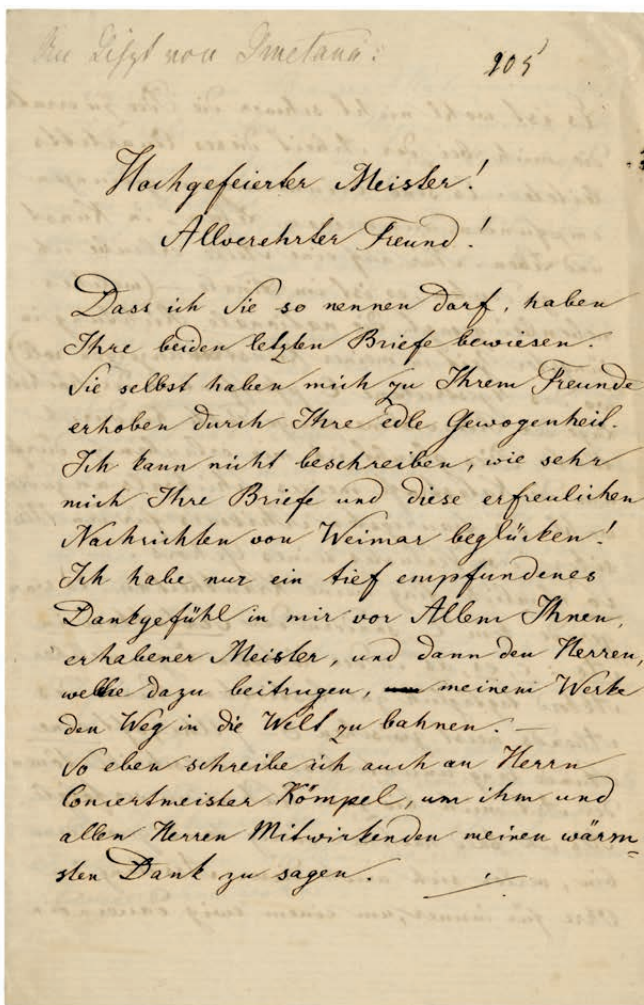 An Liszt von Smetana:
205
Hochgefeierter Meister!
Allverehrter Freund!
Dass ich Sie so nennen darf, haben
Ihre beiden letzten Briefe bewiesen.
Sie selbst haben mich zu Ihrem Freunde
erhoben durch Ihre edle Gewogenheit.
Ich kann nicht beschreiben, wie sehr
mich Ihre Briefe und diese erfreulichen
Nachrichten von Weimar beglücken!
Ich habe nur ein tief empfundenes
Dankgefühl in mir vor Allem Ihnen,
erhabener Meister, und dann den Herren,
welche dazu beitrugen, meinem Werke
den Weg in die Welt zu bahnen. —
So eben schreibe ich auch an Herrn
Concertmeister Kömpel, um ihm und
allen Herren Mitwirkenden meinen wärm=
sten Dank zu sagen.